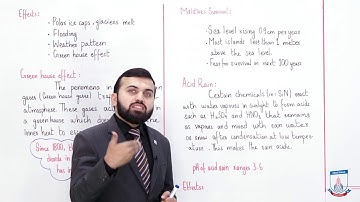 Effects:
• Polar ice caps, glaciers melt
• Flooding
• Weather pattern
• Green house effect
Green house effect:
The penomena in
gases (Green house gases)
atmosphere. These gases act
a green house which does
heat to
Since 1800, the
dioxide in
has in
Maldives Survival:
• Sea level rising 0.9 cm per year
• Most islands less than 1 meter
above the sea level.
• Fear for survival in next 100 years
Acid Rain:
Certain chemicals react
with water vapours in sunlight to form acids
such as H₂SO₄ and HNO₃ that remains
as vapours and mixed with rain water
as snow after condensation at low temper-
ature. This makes the rain acidic.
pH of acid rain ranges 3-6
Effects: